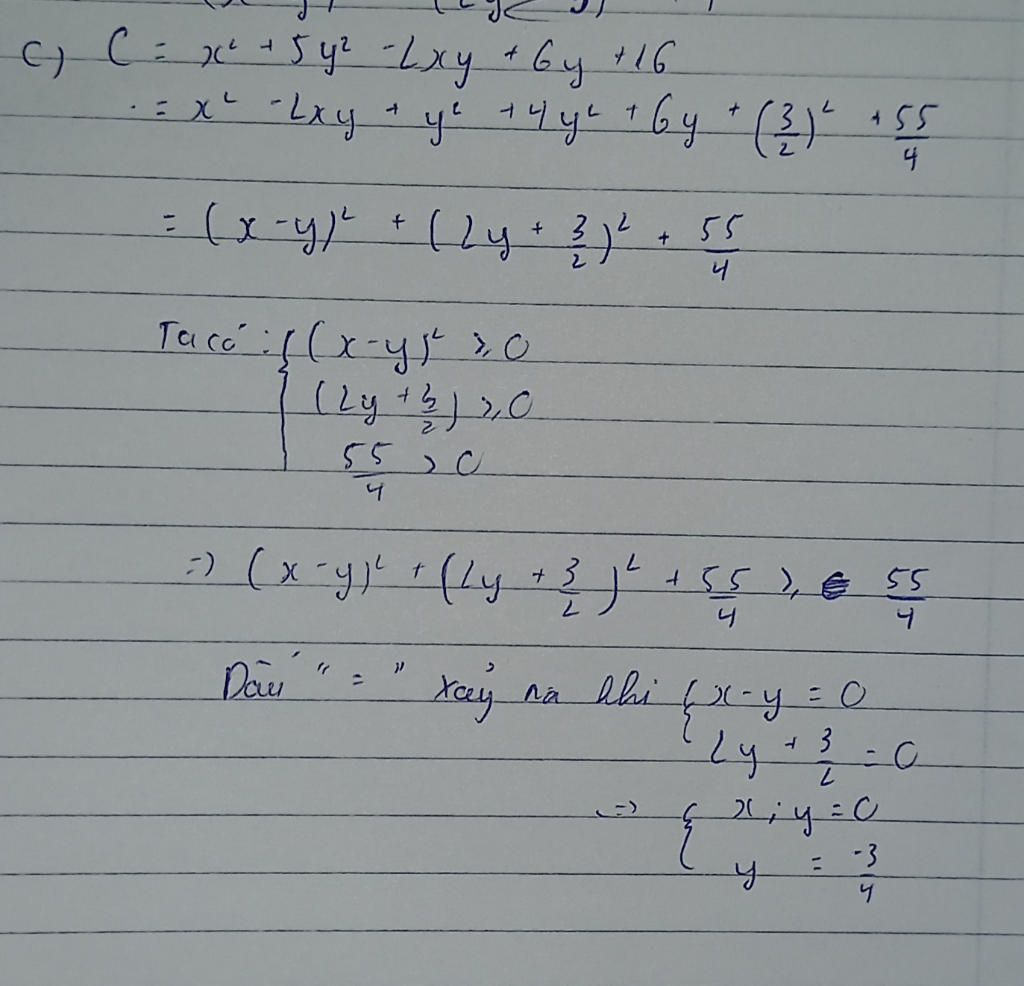 c) C = x² + 5y² - 2xy + 6y + 16
= x² - 2xy + y² + 4y² + 6y + (3/2)² + 55/4
= (x - y)² + (2y + 3/2)² + 55/4
Ta có : { (x - y)² ≥ 0
(2y + 3/2) ≥ 0
55/4 > 0
=> (x - y)² + (2y + 3/2)² + 55/4 ≥ 55/4
Dấu " = " xảy ra khi { x - y = 0
2y + 3/2 = 0
<=> { x ; y = 0
y = -3/4